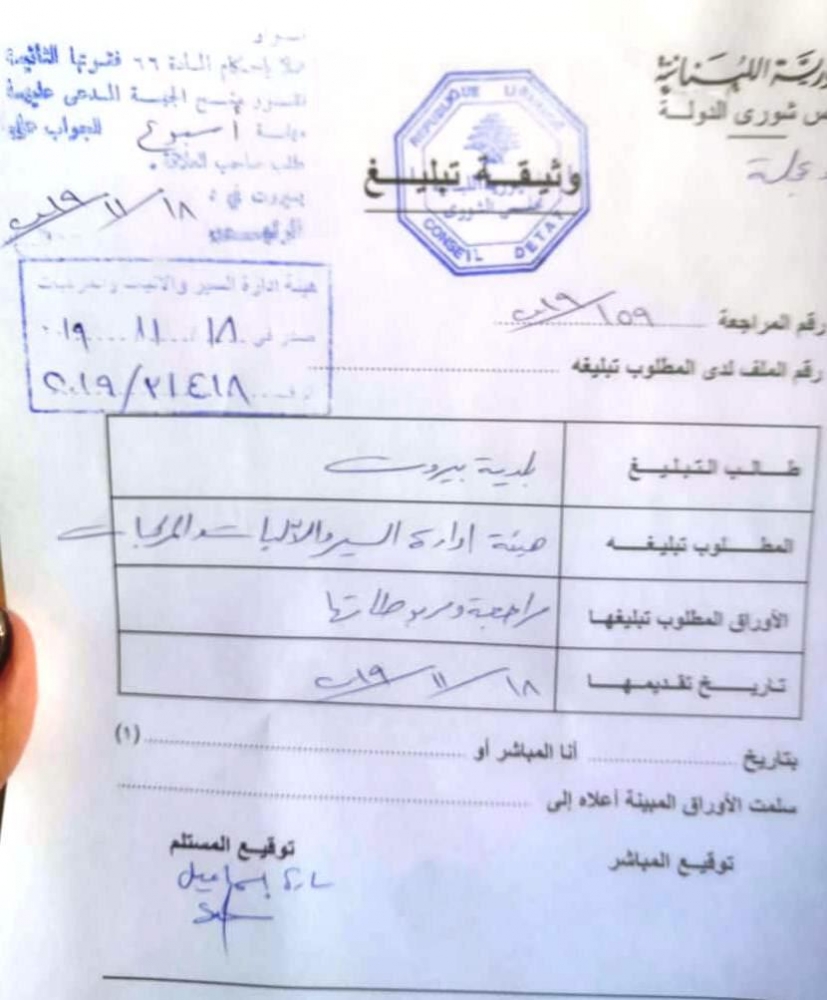 الجمهوريّة اللبنانيّة
مجلس شورى الدولة
معجلة
عملا بإحكام المادة ٦٦ فقرتها الثانية
تقرر منح الجهة المدعى عليها
مهلة اسبوع للجواب على
طلب صاحب العلاقة .
بيروت في : ١٨/١١/٢٠١٩
REPUBLIQUE LIBANAISE
مجلس الشورى
CONSEIL D'ETAT
وثيقة تبليغ
هيئة ادارة السير والآليات والمركبات
صدر في ١٨ ١١ ٢٠١٩
٢١٤١٨/٢٠١٩
رقم المراجعة ١٥٩/٢٠١٩
رقم الملف لدى المطلوب تبليغه
طالب التبليغ بلدية بيروت
المطلوب تبليغه هيئة ادارة السير والآليات والمركبات
الأوراق المطلوب تبليغها مراجعة ومربوطاتها
تاريخ تقديمها ١٨/١١/٢٠١٩
بتاريخ .......... أنا المباشر أو .......... (١)
سلمت الأوراق المبينة أعلاه إلى ..........
توقيع المباشر توقيع المستلم
سارة إسماعيل